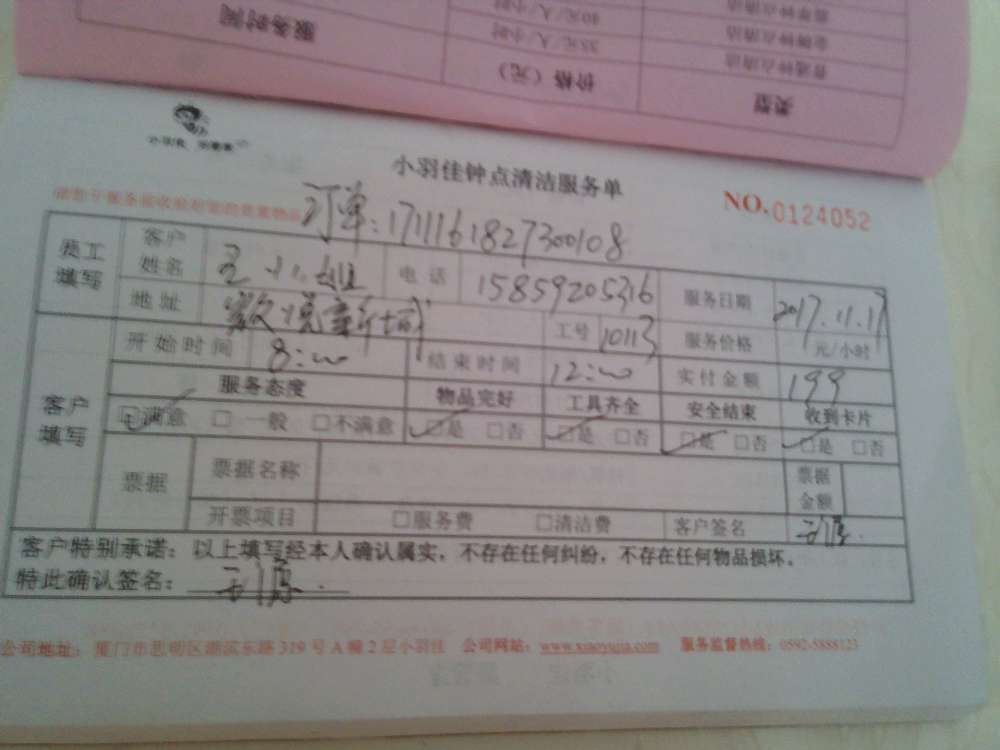 服务时间
40元/人/小时
35元/人/小时
金牌钟点清洁
普通钟点清洁
价格（元）
类型
小羽佳钟点清洁服务单
NO.0124052
订单:1711161827300108
员工填写
客户姓名
王小姐
电话
15859205316
服务日期
2017.11.17
地址
工号
10113
服务价格
元/小时
客户填写
开始时间
8:00
结束时间
12:00
实付金额
199
服务态度
物品完好
工具齐全
安全结束
收到卡片
☑满意 □一般 □不满意
☑是 □否
☑是 □否
☑是 □否
☑是 □否
票据
票据名称
票据金额
开票项目
□服务费 □清洁费
客户签名
客户特别承诺：以上填写经本人确认属实，不存在任何纠纷，不存在任何物品损坏。
特此确认签名：
公司地址：厦门市思明区湖滨东路319号A幢2层小羽佳 公司网站：www.xiaoyujia.com 服务监督热线：0592-5888123